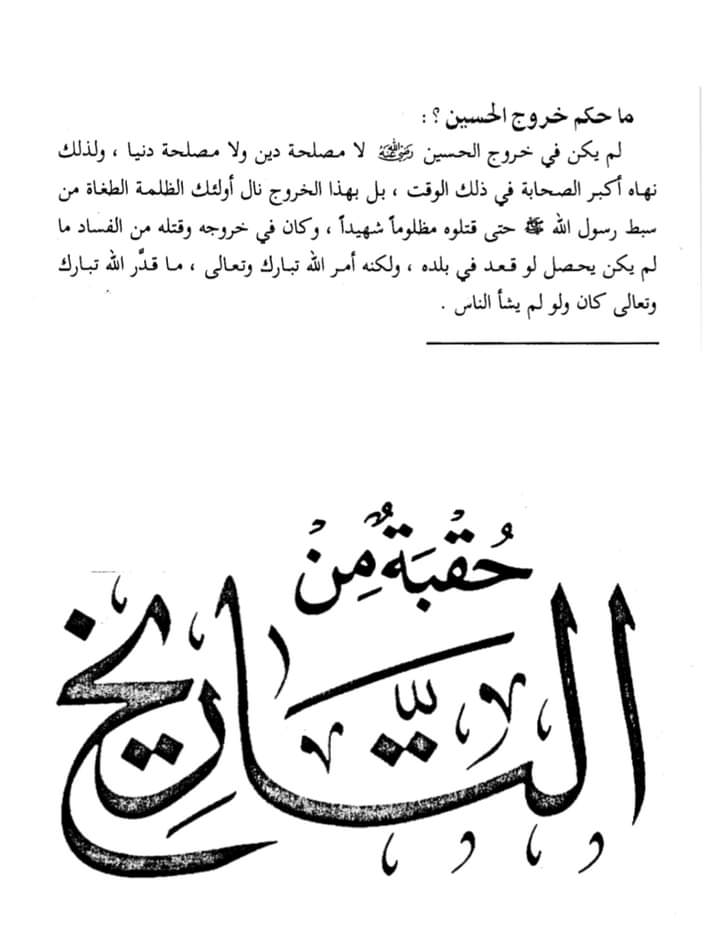 ما حكم خروج الحسين ؟ :
لم يكن في خروج الحسين رضي الله عنه لا مصلحة دين ولا مصلحة دنيا ، ولذلك
نهاه أكبر الصحابة في ذلك الوقت ، بل بهذا الخروج نال أولئك الظلمة الطغاة من
سبط رسول الله ﷺ حتى قتلوه مظلوماً شهيداً ، وكان في خروجه وقتله من الفساد ما
لم يكن يحصل لو قعد في بلده ، ولكنه أمر الله تبارك وتعالى ، ما قدَّر الله تبارك
وتعالى كان ولو لم يشأ الناس .
حُقْبَةٌ مِنَ
التَّارِيخِ